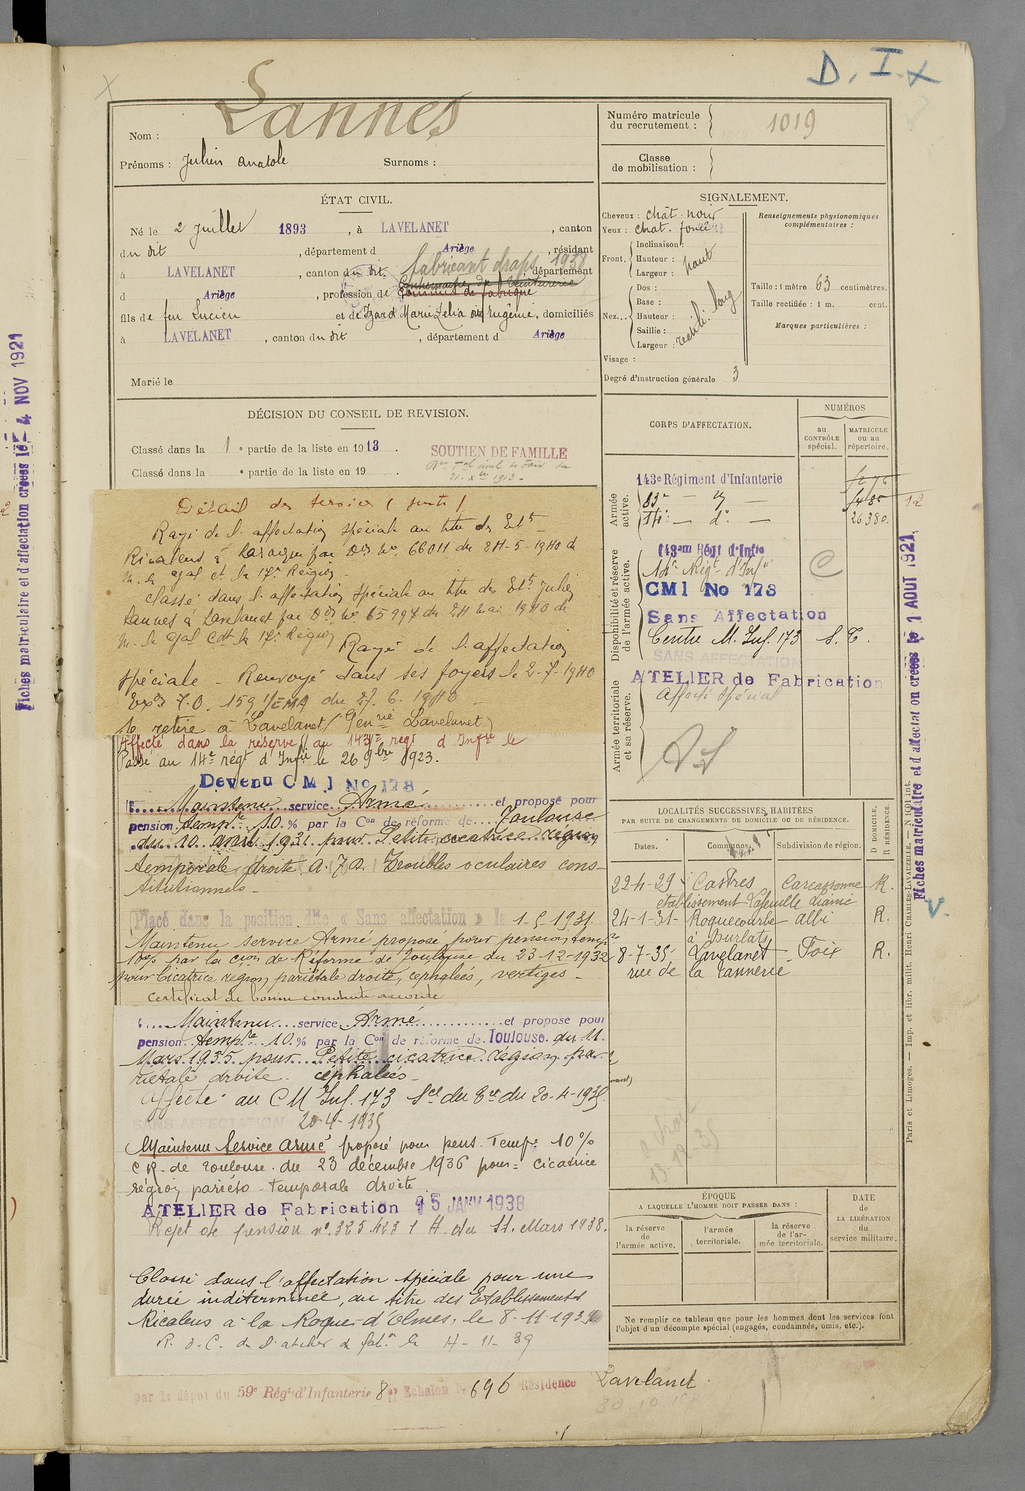 D. I. x
Lannes
Nom :
Prénoms : Julien Anatole Surnoms :
Numéro matricule du recrutement : 1019
Classe de mobilisation :
ÉTAT CIVIL.
Né le 2 Juillet 1893, à LAVELANET, canton
du dit, département d Ariège, résidant
à LAVELANET, canton du dit, département
fabricant draps 1938
d Ariège, profession de Commis de fabrique
fils de feu Lucien et de Izard Marie Zélia ou Eugénie, domiciliés
à LAVELANET, canton du dit, département d Ariège
Marié le
SIGNALEMENT.
Cheveux : chât. noir
Yeux : chât. foncé
Front. Inclinaison :
Hauteur : haut
Largeur :
Nez... Dos :
Base :
Hauteur :
Saillie :
Largeur :
rectili. long
Visage :
Degré d'instruction générale 3
Renseignements physionomiques complémentaires :
Taille : 1 mètre 63 centimètres.
Taille rectifiée : 1 m. cent.
Marques particulières :
DÉCISION DU CONSEIL DE REVISION.
Classé dans la 1e partie de la liste en 1913.
Classé dans la e partie de la liste en 19 .
SOUTIEN DE FAMILLE
CORPS D'AFFECTATION.
NUMÉROS
au CONTRÔLE spécial.
MATRICULE ou au répertoire.
Armée active.
143e Régiment d'Infanterie
83e — d° —
14e — d° — 26380
Disponibilité et réserve de l'armée active.
143em Régt d'Infie
14e Régt d'Infie
CMI No 178
Sans Affectation
Centre M. Inf. 173 S. C.
SANS AFFECTATION
Armée territoriale et sa réserve.
ATELIER de Fabrication
Affecté spécial
Détail des services (suite)
Rayé de l'affectation spéciale au titre des Ets
Ricalens à Laroque par Don No. 66011 du 24-5-1940 de
M. le Gal Ct la 17e Région.
Classé dans l'affectation spéciale au titre des Ets Julien
Lannes à Lavelanet par Don No 65994 du 24 Mai 1940 de
M. le Gal Cdt la 17e Région Rayé de l'affectation
spéciale Renvoyé dans ses foyers le 2-7-1940
159 1/EMA du 27. 6. 1940
Se retire à Lavelanet (Genrie Lavelanet)
Affecté dans la réserve au 143e regt d'Infie le
Passé au 14e régt d'Infie le 26 9bre 1923.
Devenu CMI No 178
Maintenu service Armé et proposé pour
pension tempre 10 % par la Con de réforme de Toulouse
du 10 avril 1931 pour Petite cicatrice région
temporale droite A. J. D. Troubles oculaires cons-
titutionnels.
Placé dans la position dite « Sans affectation » le 1-5-1931
Maintenu service Armé proposé pour pension tempre
10% par la Cion de Réforme de Toulouse du 23-12-1932
pour Cicatrice région pariétale droite, céphalées, vertiges.
Certificat de bonne conduite accordé
Maintenu service Armé et proposé pour
pension tempre 10 % par la Con de réforme de Toulouse du 11
Mars 1935 pour Petite cicatrice région pa-
riétale droite. céphalées.
Affecté au CM Inf. 173 Son du Ct du 20-4-1935
SANS AFFECTATION 20-4-1935
Maintenu Service armé proposé pour pens. Tempre 10%
CR. de Toulouse du 23 décembre 1936 pour : cicatrice
région pariéto-temporale droite.
ATELIER de Fabrication 15 JANV 1938
Rejet de pension n° 325.423 1 H. du 11. Mars 1938.
Classé dans l'affectation spéciale pour une
durée indéterminée, au titre des Etablissements
Ricalens à la Roque-d'Olmes, le 8-11-193
R. d. C. de l'atelier de fabon le 4-11-39
par le dépôt du 59e Régt d'Infanterie 8 Echelon No 696 Résidence Lavelanet.
LOCALITÉS SUCCESSIVES HABITÉES
PAR SUITE DE CHANGEMENTS DE DOMICILE OU DE RÉSIDENCE.
Dates. Communes. Subdivision de région. D DOMICILE. R RÉSIDENCE.
22-4-29 Castres Carcassonne R.
24-1-31 Roquecourbe Albi R.
à Burlats
8-7-35 Lavelanet Foix R.
rue de la Tannerie
ÉPOQUE
A LAQUELLE L'HOMME DOIT PASSER DANS :
la réserve de l'armée active.
l'armée territoriale.
la réserve de l'armée territoriale.
DATE de LA LIBÉRATION du service militaire.
Ne remplir ce tableau que pour les hommes dont les services font
l'objet d'un décompte spécial (engagés, condamnés, omis, etc.).
Paris et Limoges. — Imp. et libr. milit. Henri CHARLES-LAVAUZELLE.
Fiches matriculaire et d'affectation créées le 1 AOUT 1921
Fiches matriculaire et d'affectation créées le 4 NOV 1921